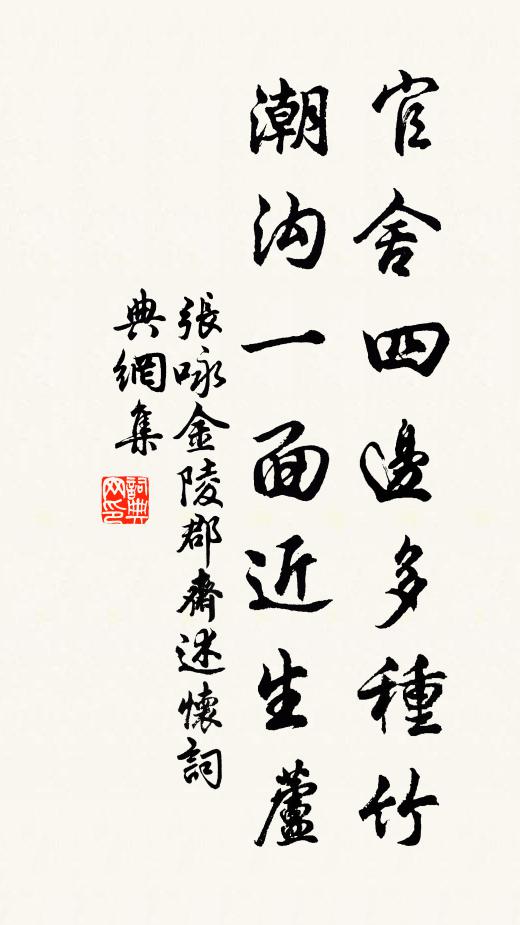 官舍四邊多種竹
潮沟一面近生蘆
張咏金陵郡齋述懷詞
典網集
詞典
网印